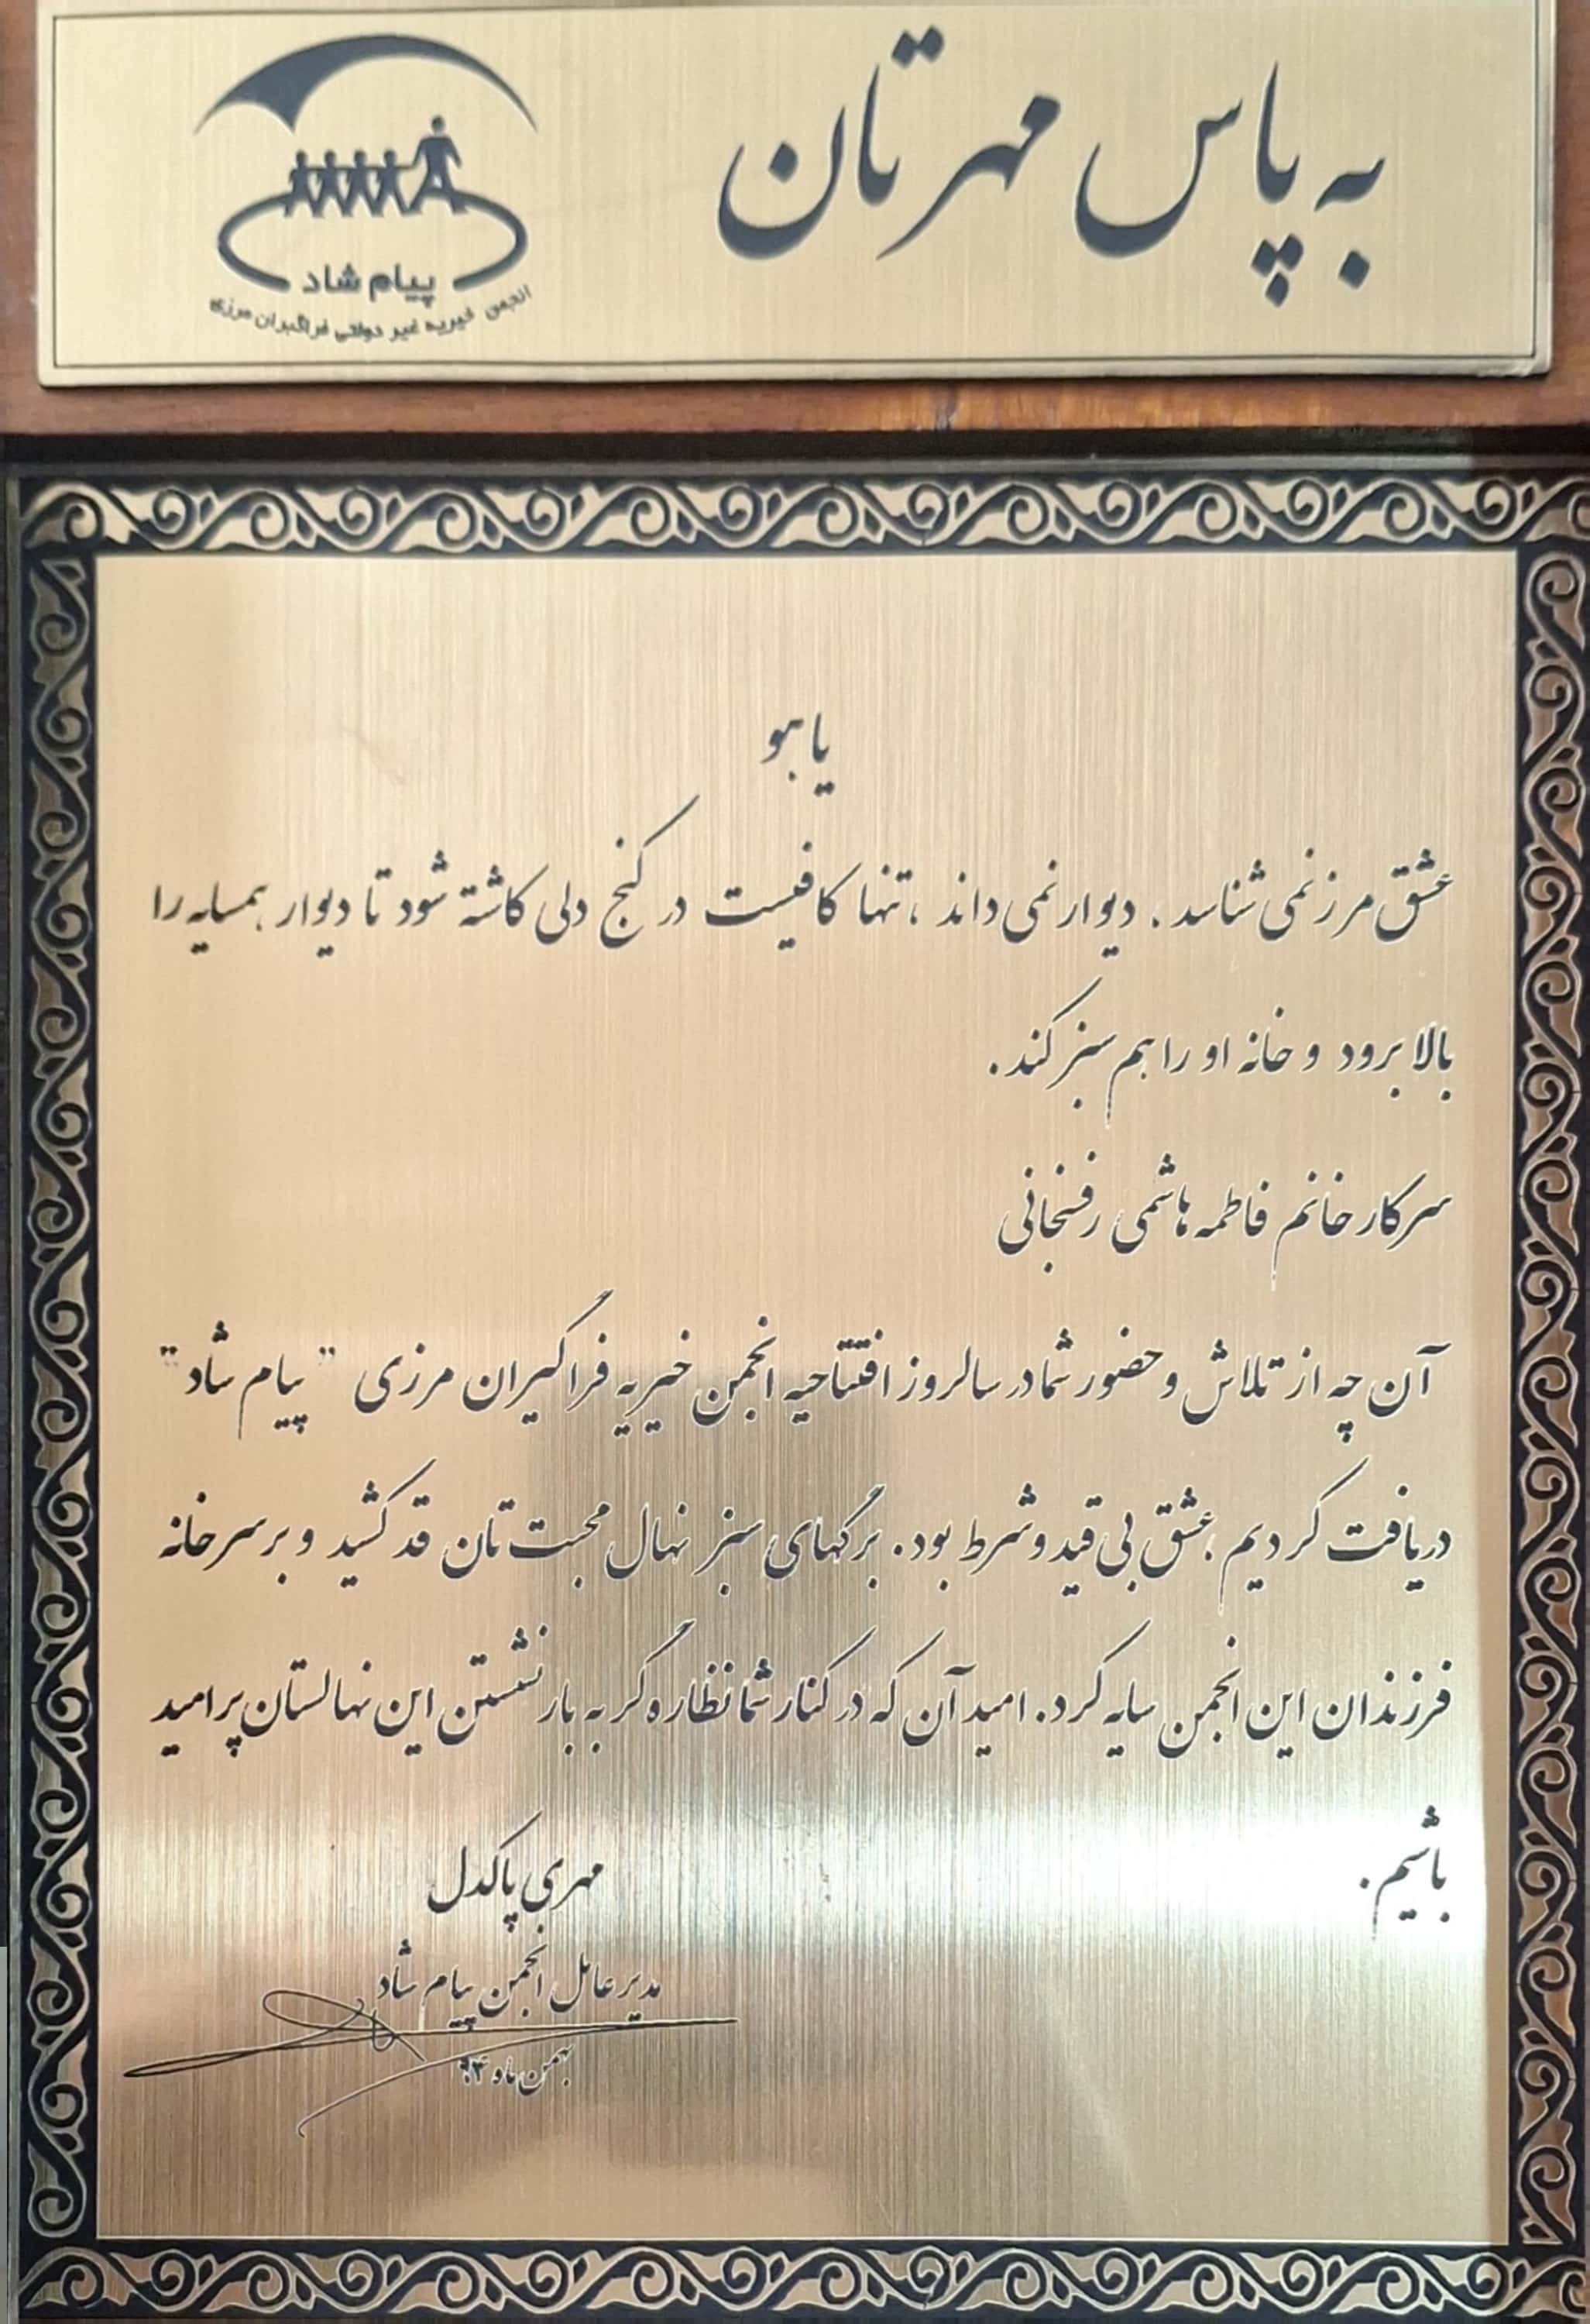 به پاس مهرتان
پیام شاد
انجمن خیریه غیر دولتی فراگیران مرزی
یا هو
عشق مرز نمی شناسد . دیوار نمی داند ، تنها کافیست در کنج دلی کاشته شود تا دیوار همسایه را
بالا برود و خانه او را هم سبز کند .
سرکار خانم فاطمه هاشمی رفسنجانی
آن چه از تلاش و حضور شما در سالروز افتتاحیه انجمن خیریه فراگیران مرزی " پیام شاد "
دریافت کردیم ، عشق بی قید و شرط بود . برگهای سبز نهال محبت تان قد کشید و بر سر خانه
فرزندان این انجمن سایه کرد . امید آن که در کنار شما نظاره گر به بار نشستن این نهالستان پر امید
باشیم .
مهری پاکدل
مدیر عامل انجمن پیام شاد
بهمن ماه ۹۴